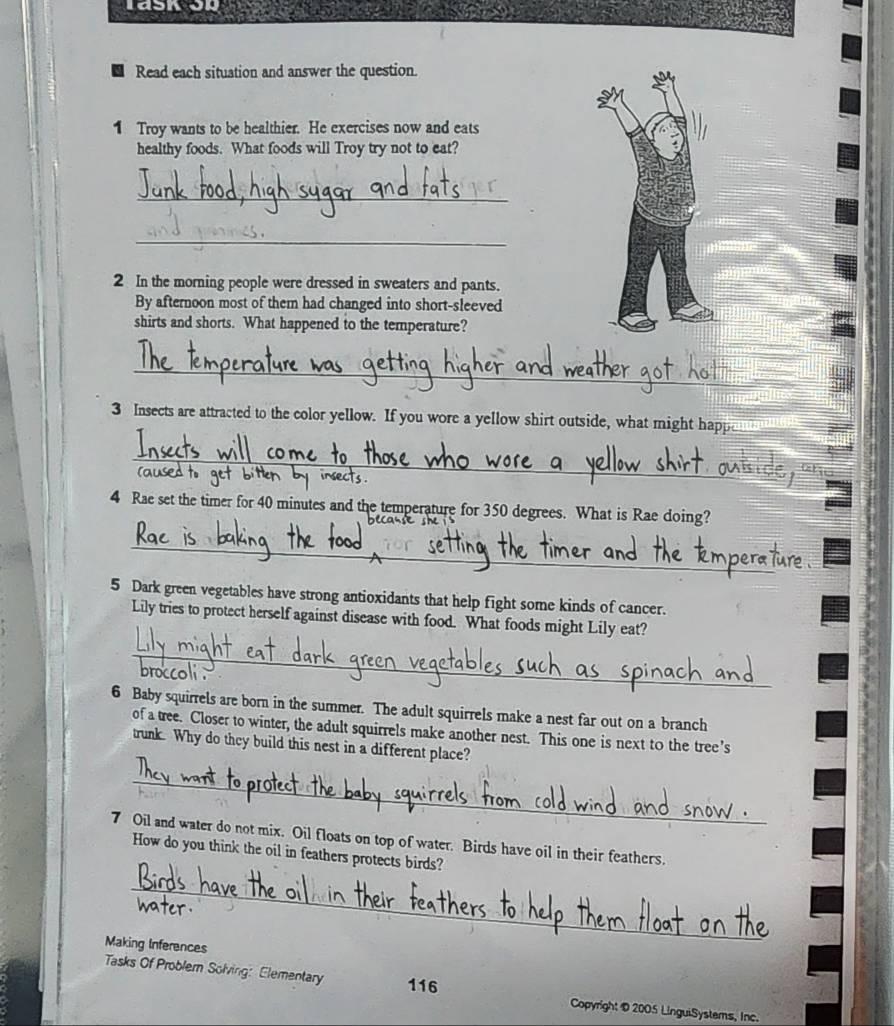 Task 3b
Read each situation and answer the question.
1 Troy wants to be healthier. He exercises now and eats
healthy foods. What foods will Troy try not to eat?
Junk food, high sugar and fats
and
2 In the morning people were dressed in sweaters and pants.
By afternoon most of them had changed into short-sleeved
shirts and shorts. What happened to the temperature?
The temperature was getting higher and weather got
3 Insects are attracted to the color yellow. If you wore a yellow shirt outside, what might
Insects will come to those who wore a yellow shirt outside,
caused to get bitten by insects.
4 Rae set the timer for 40 minutes and the temperature for 350 degrees. What is Rae doing?
because she is
Rae is baking the food setting the timer and the temperature.
5 Dark green vegetables have strong antioxidants that help fight some kinds of cancer.
Lily tries to protect herself against disease with food. What foods might Lily eat?
Lily might eat dark green vegetables such as spinach and
broccoli.
6 Baby squirrels are born in the summer. The adult squirrels make a nest far out on a branch
of a tree. Closer to winter, the adult squirrels make another nest. This one is next to the tree's
trunk. Why do they build this nest in a different place?
They want to protect the baby squirrels from cold wind and snow.
7 Oil and water do not mix. Oil floats on top of water. Birds have oil in their feathers.
How do you think the oil in feathers protects birds?
Birds have the oil in their feathers to help them float on the
water.
Making Inferences
Tasks Of Problem Solving: Elementary
116
Copyright © 2005 LinguiSystems, Inc.